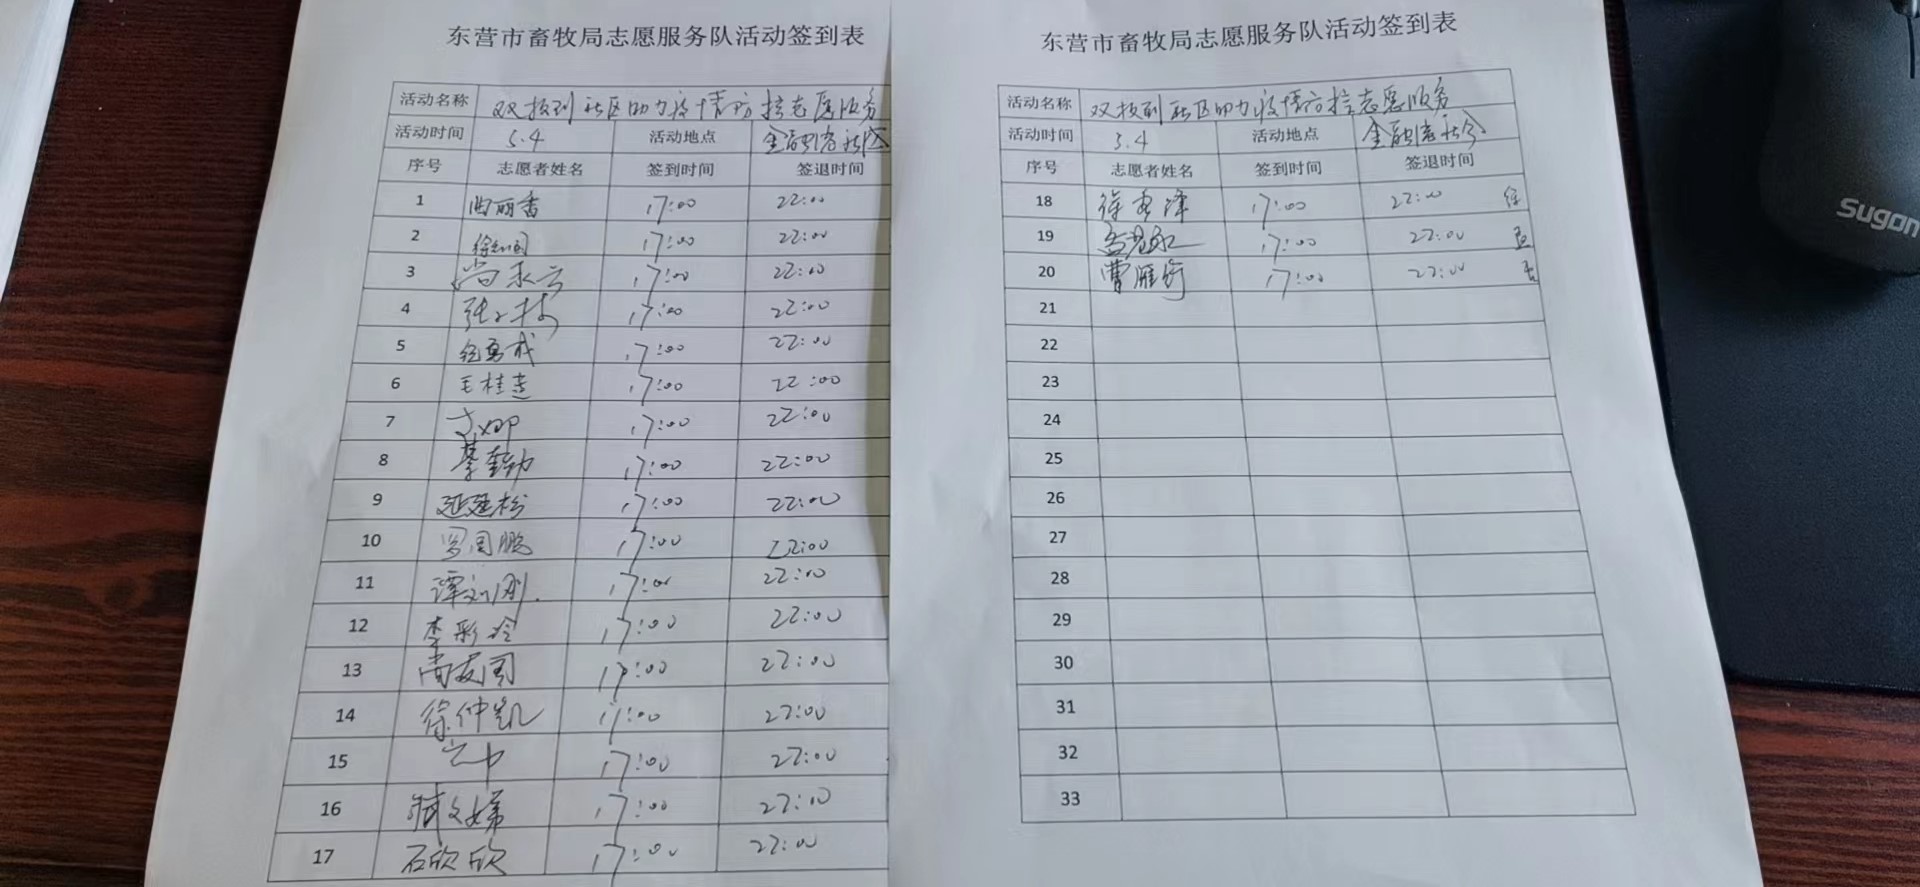 东营市畜牧局志愿服务队活动签到表
活动名称 双报到社区助力疫情防控志愿服务
活动时间 5.4 活动地点 金融港社区
序号 志愿者姓名 签到时间 签退时间
1 曲丽香 17:00 22:00
2 17:00 22:00
3 尚永云 17:00 22:00
4 17:00 22:00
5 17:00 22:00
6 王桂莲 17:00 22:00
7 17:00 22:00
8 17:00 22:00
9 延建松 17:00 22:00
10 罗国鹏 17:00 22:00
11 谭 刚 17:00 22:00
12 李彩玲 17:00 22:00
13 尚友国 17:00 22:00
14 徐仲凯 17:00 22:00
15 17:00 22:00
16 臧文娣 17:00 22:00
17 石欣欣 17:00 22:00
东营市畜牧局志愿服务队活动签到表
活动名称 双报到社区助力疫情防控志愿服务
活动时间 5.4 活动地点 金融港社区
序号 志愿者姓名 签到时间 签退时间
18 17:00 22:00
19 17:00 22:00
20 曹雁 17:00 22:00
21
22
23
24
25
26
27
28
29
30
31
32
33
Sugon